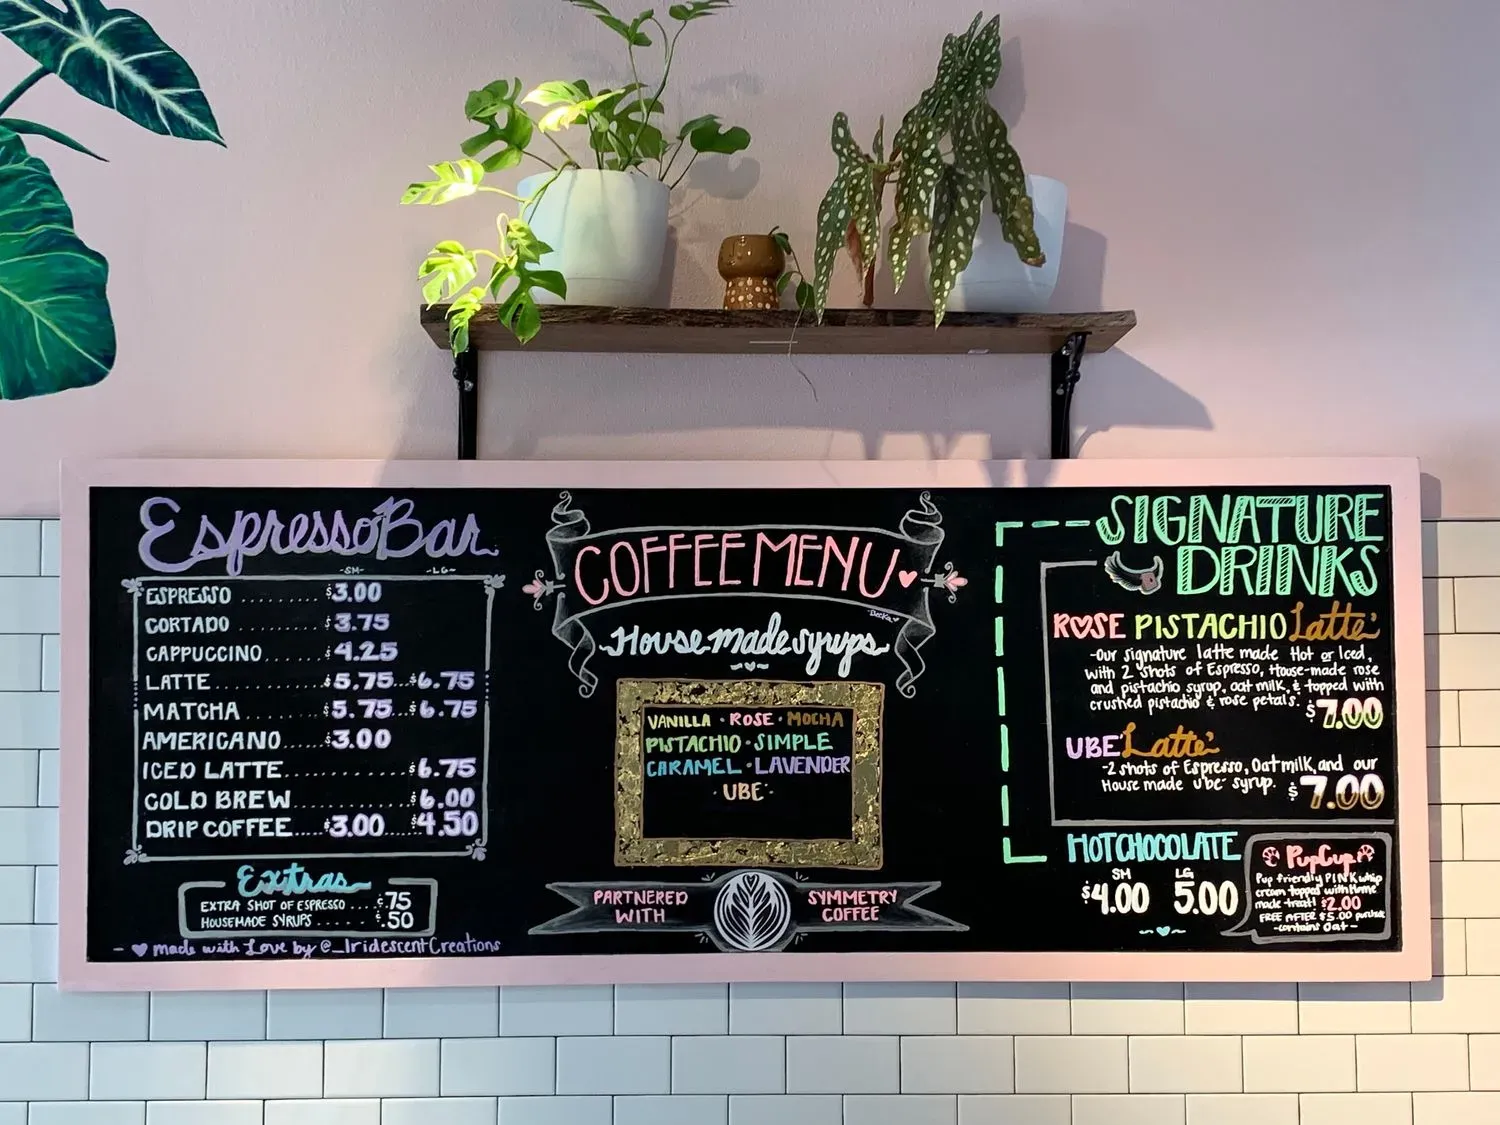 Espresso Bar
-SM- -LG-
ESPRESSO ......... $3.00
CORTADO ........ $3.75
CAPPUCCINO...... $4.25
LATTE ........... $5.75...$6.75
MATCHA ......... $5.75...$6.75
AMERICANO...... $3.00
ICED LATTE............. $6.75
COLD BREW ............ $6.00
DRIP COFFEE.....$3.00....$4.50
Extras
EXTRA SHOT OF ESPRESSO .... .75
HOUSEMADE SYRUPS ..... .50
- ♥ made with Love by @_IridescentCreations
COFFEE MENU ♥
House made syrups
VANILLA · ROSE · MOCHA
PISTACHIO · SIMPLE
CARAMEL · LAVENDER
· UBE ·
PARTNERED
WITH
SYMMETRY
COFFEE
SIGNATURE
DRINKS
ROSE PISTACHIO Latte
-Our signature latte made Hot or Iced,
with 2 shots of Espresso, House-made rose
and pistachio syrup, oat milk, & topped with
crushed pistachio & rose petals. $7.00
UBE Latte
-2 shots of Espresso, Oatmilk, and our
House made ube syrup. $7.00
HOT CHOCOLATE
SM LG
$4.00 5.00
PupCup
Pup friendly PINK whip
cream topped with Home
made treat! $2.00
FREE AFTER $5.00 purchase
-contains Oat-